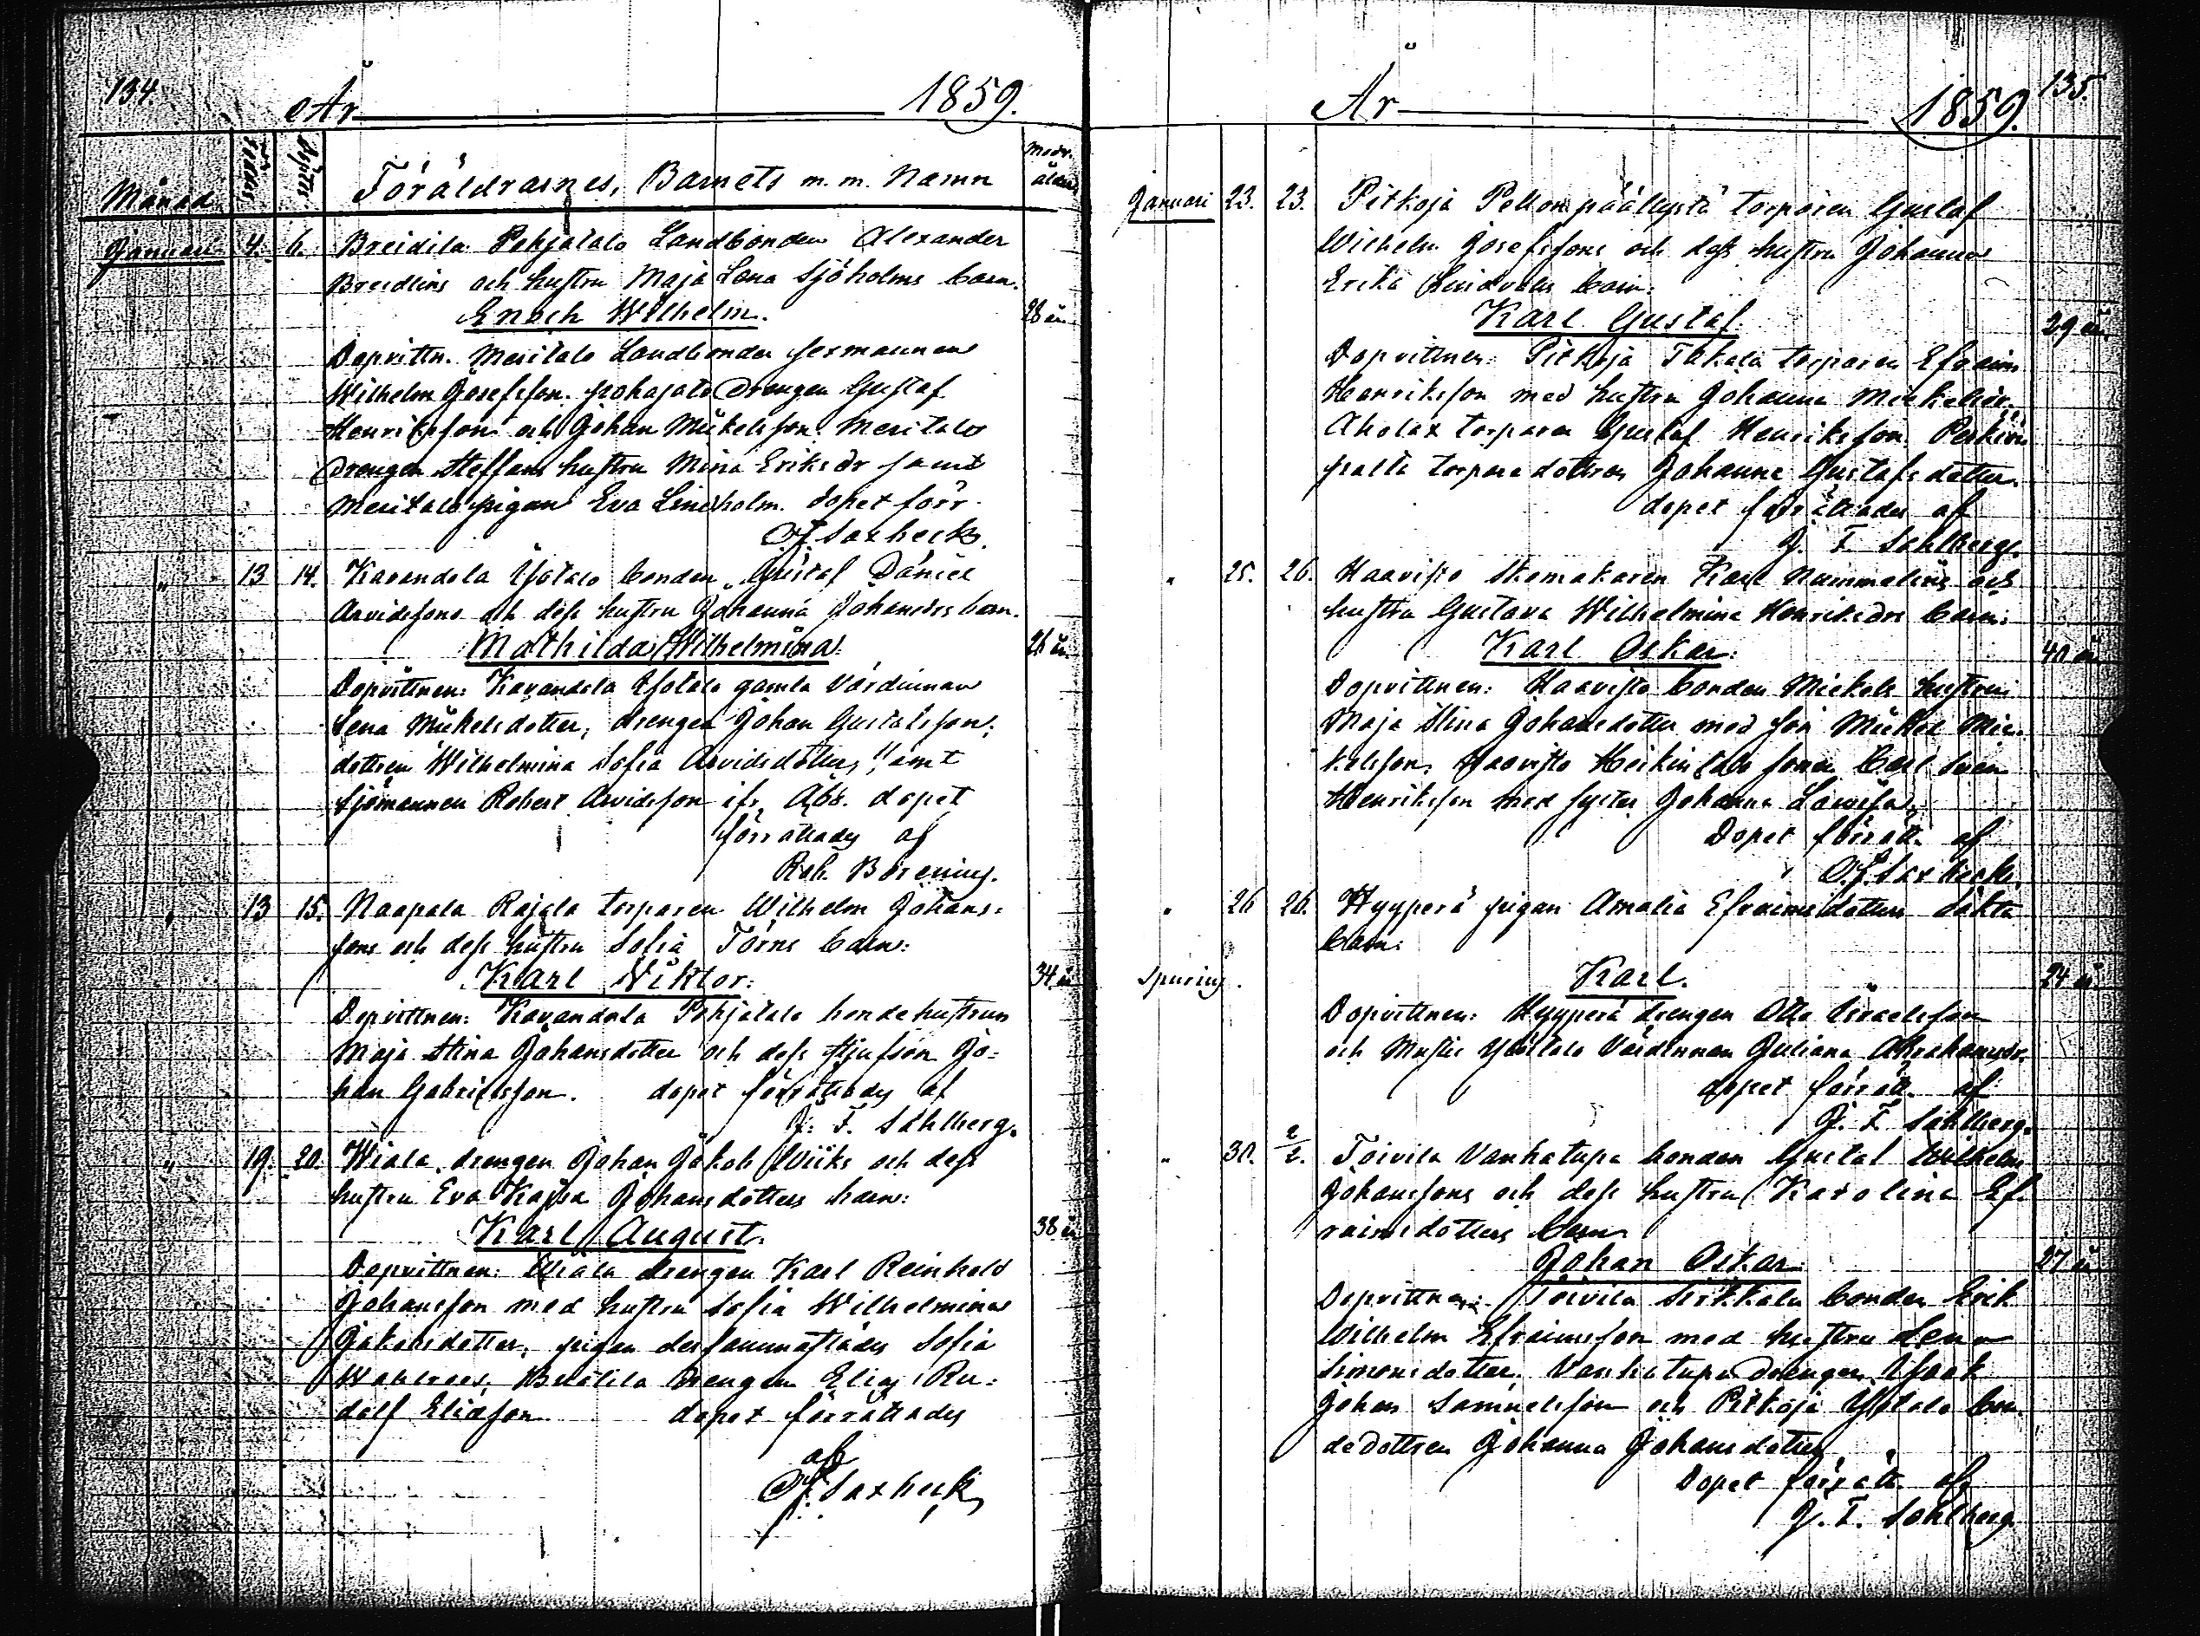 134.
År 1859.
Månad Födde Döptes Föräldrarnes, Barnets m. m. Namn Modr. ålder
Januari 4. 6. Breidila Pohjatalo Landbonden Alexander
Breidlins och hustru Maja Lena Sjöholms barn.
Enoch Wilhelm. 28 år
Dopvittn. Meritalo Landbonden sexmannen
Wilhelm Josefsson. drengen Gustaf
Henriksson och Johan Mickelsson Meritalo
drengen Steffans hustru Mina Eriksdr samt
Meritalo pigan Eva Lindholm. dopet förr.
Saxbeck.
" 13 14. Kavandola Ylötalo bonden Gustaf Daniel
Arvidssons och dess hustru Johanna Johansdrs barn.
Mathilda Wilhelmina. 26 år
Dopvittnen: Kavandola Ylötalo gamla Värdinnan
Lena Mickelsdotter, drengen Johan Gustafsson,
dottren Wilhelmina Sofia Arvidsdotter, samt
Sjömannen Robert Arvidsson ifr. Åbo. dopet
förrättades af
Rob. Borenius.
" 13 15. Naapala Rajala torparen Wilhelm Johans-
sons och dess hustru Sofia Törns barn:
Karl Viktor. 34 år
Dopvittnen: Kavandola Pohjatalo bondehustrun
Maja Stina Johansdotter och dess stjufson Jo-
han Gabrielsson. dopet förrättades af
J. F. Sahlberg.
" 19. 20. Wiala drengen Johan Jakob Wiiks och dess
hustru Eva Kajsa Johansdotters barn:
Karl August. 38 år
Dopvittnen: Wiala drengen Karl Reinhold
Johansson med hustru Sofia Wilhelmina
Jakobsdotter, pigan dersammastädes Sofia
drengen Elias Ru-
dolf Eliasson dopet förrättades
af
Saxbeck
135.
År 1859.
Januari 23. 23. Pitkoja Pellonpäällystä torparen Gustaf
Wilhelm Josefssons och dess hustru Johanna
Erika Lindvalls barn:
Karl Gustaf. 29 år
Dopvittnen: Pitkoja Takala torparen Efraim
Henriksson med hustru Johanna Mickelsdr.
torparen Gustaf Henriksson
torpare dottren Johanna Gustafsdotter.
dopet förrättades af
J. F. Sahlberg.
" 25. 26. Haavisto skomakaren Karl Nummelins och
hustru Gustava Wilhelmina Henriksdrs barn:
Karl Oskar: 40 år
Dopvittnen: Haavisto bonden Mickels hustru
Maja Stina Johansdotter med son Mickel Mic-
kelsson, Haavisto Heikintalo sonen Carl Sven
Henriksson med syster Johanna Lowisa,
Dopet förrätt. af
Saxbeck.
" 26 26. Hyyperä pigan Amalia Efraimsdotters oäkta
barn:
Spuring. Karl. 24 år
Dopvittnen: Hyyperä drengen Otto Israelsson
och Ylötalo Värdinnan Juliana Abrahamsdr.
dopet förrätt. af
J. F. Sahlberg.
" 30. 2/2. Toivila Vanhatupa bonden Gustaf Wilhelm
Johanssons och dess hustru Karolina Ef-
raimsdotters barn
Johan Oskar 27 år
Dopvittnen: Toivila Sirkkala bonden Erik
Wilhelm Efraimsson med hustru Lena
Simonsdotter. Vanhatupa drengen Isaak
Johan Samuelsson och Pitkoja Ylötalo bon-
dedottren Johanna Johansdotter
Dopet förrätt. af
J. F. Sahlberg